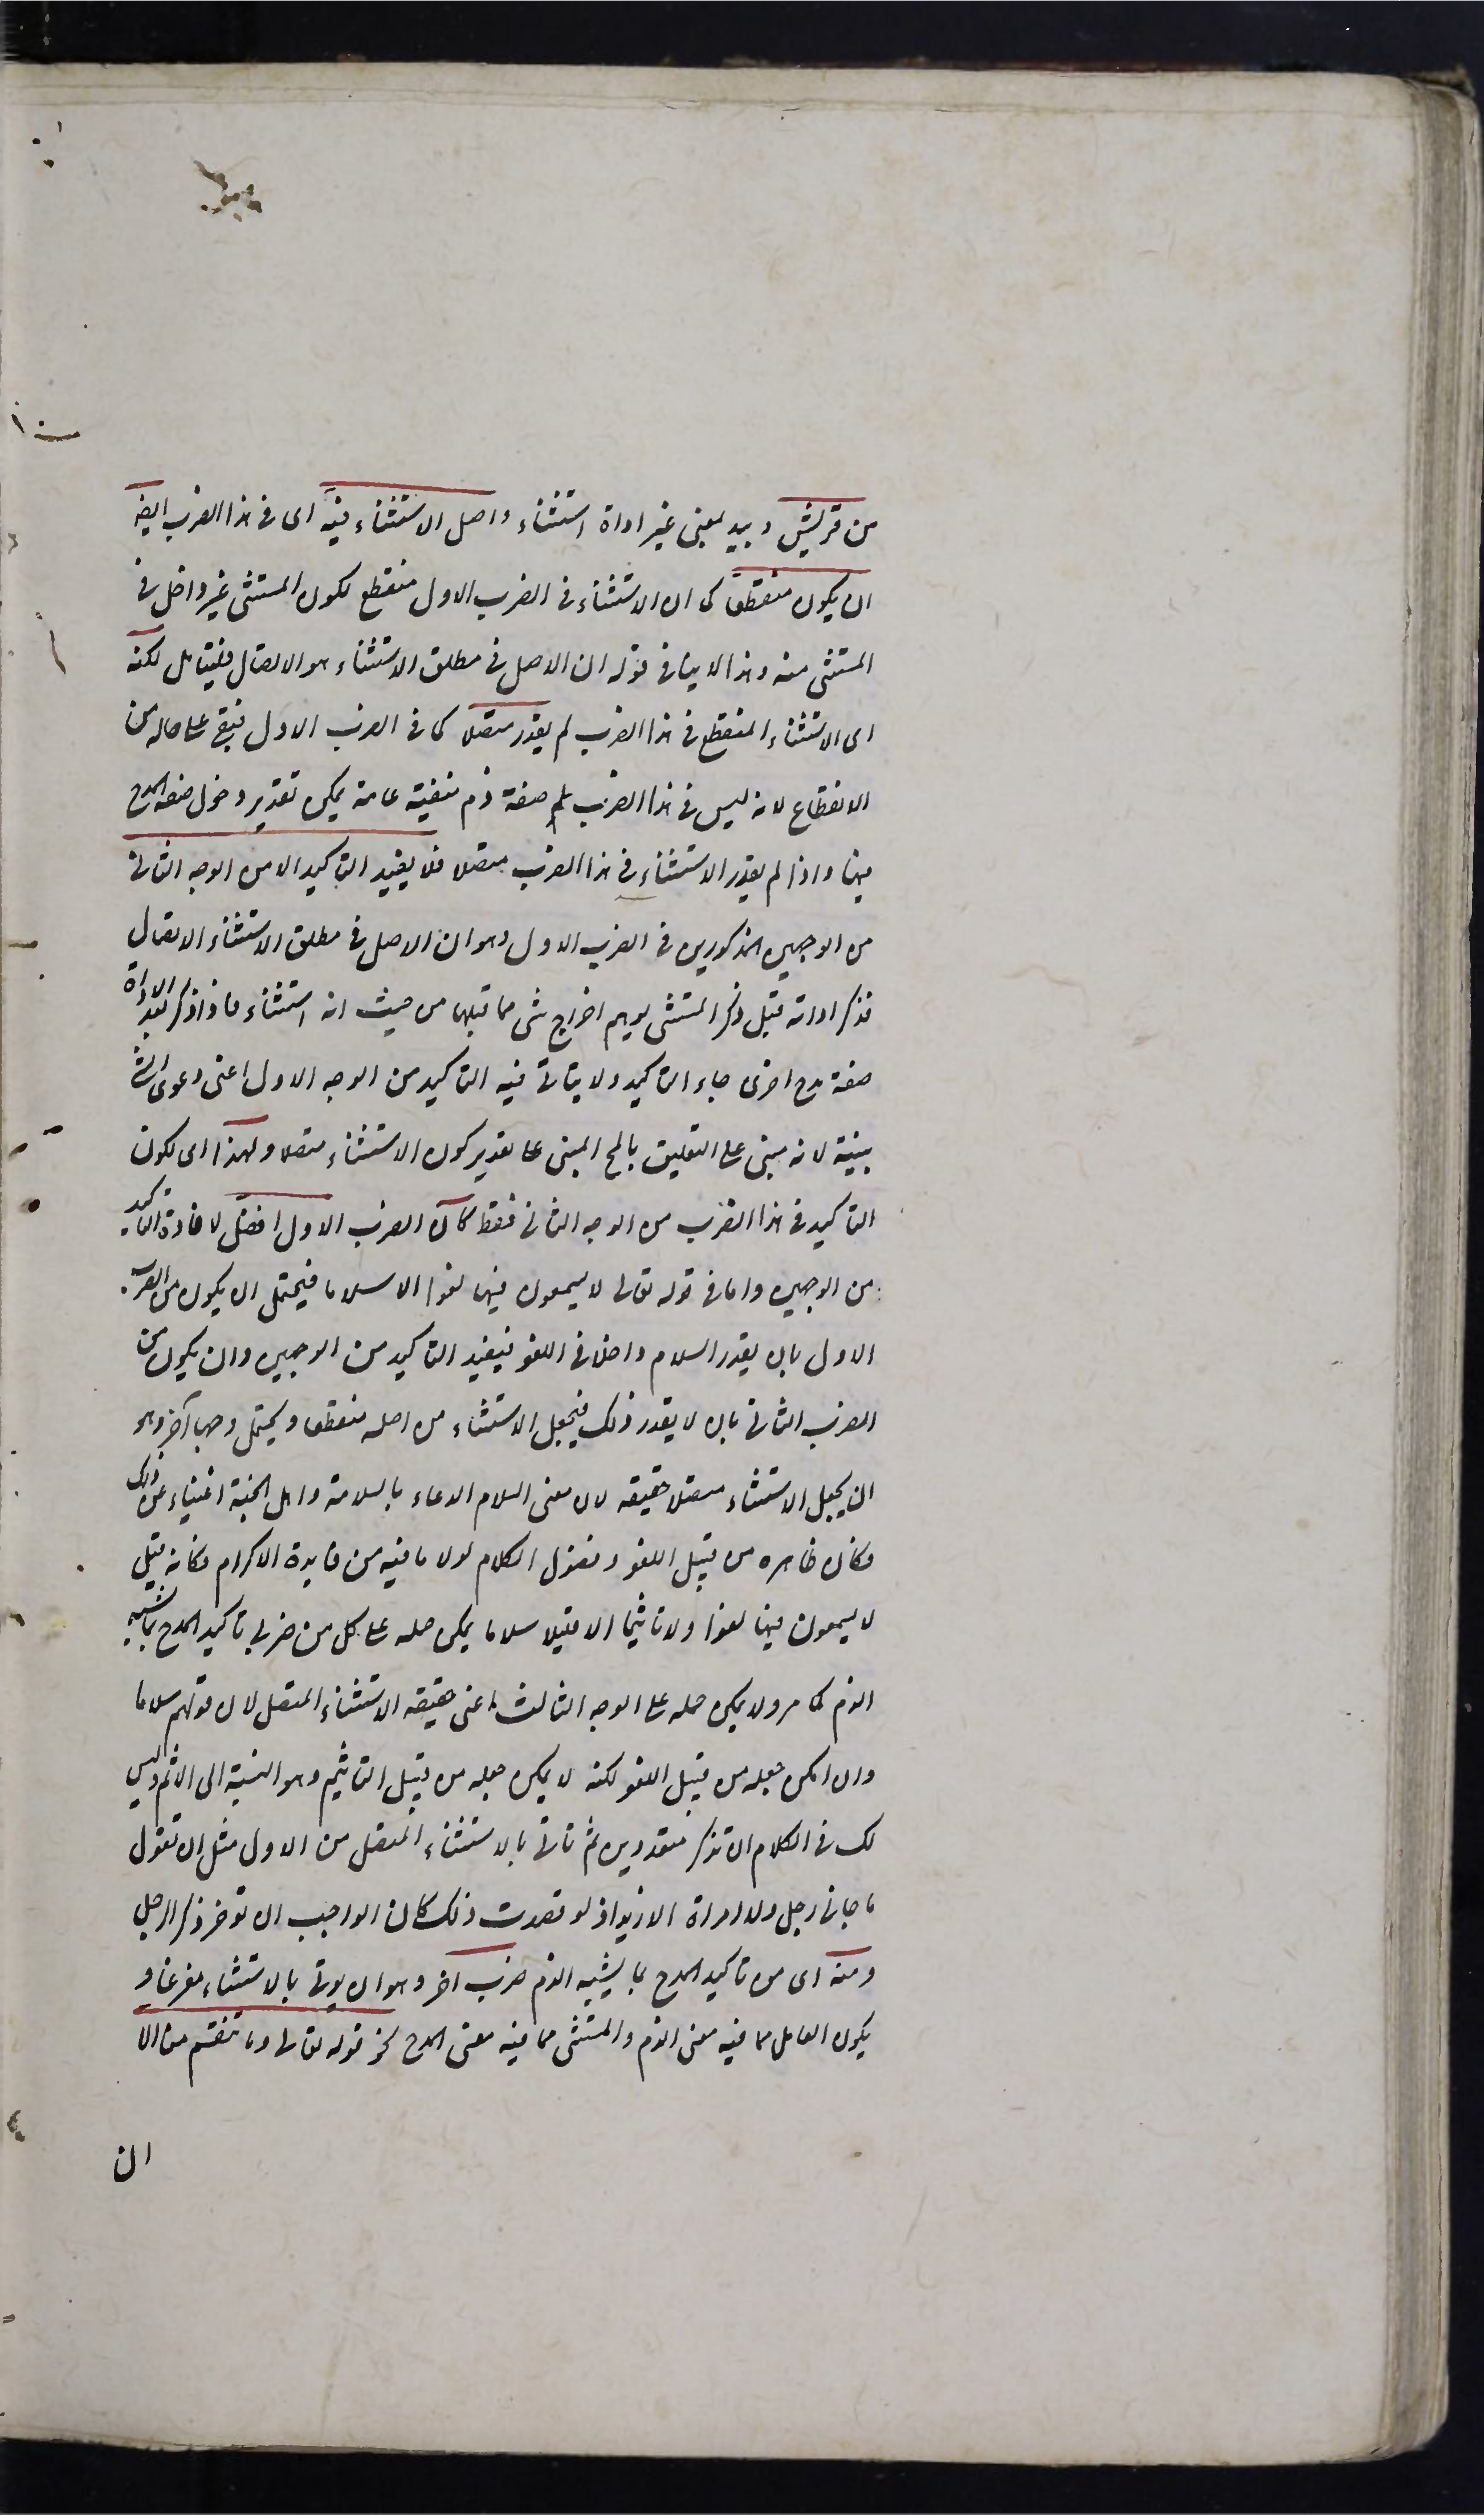 من قريش وبيد بمعنى غير اداة استثناء واصل الاستثناء فيه اى فى هذا الضرب ايضا
ان يكون منقطعا كما ان الاستثناء فى الضرب الاول منقطع لكون المستثنى غير داخل فى
المستثنى منه وهذا لا ينافى قوله ان الاصل فى مطلق الاستثناء هو الاتصال فليتامل لكنه
اى الاستثناء المنقطع فى هذا الضرب لم يقدر متصلا كما فى الضرب الاول فبقى على حاله من
الانقطاع لانه ليس فى هذا الضرب صفة ذم منفية عامة يمكن تقدير دخول صفة المدح
فيها واذا لم يقدر الاستثناء فى هذا الضرب متصلا فلا يفيد التاكيد الا من الوجه الثانى
من الوجهين المذكورين فى الضرب الاول وهو ان الاصل فى مطلق الاستثناء الاتصال
فذكر اداته قبل ذكر المستثنى يوهم اخراج شى مما قبلها من حيث انه استثناء فاذا ذكر بعد الاداة
صفة مدح اخرى جاء التاكيد ولا يتاتى فيه التاكيد من الوجه الاول اعنى دعوى الشى
ببينة لانه مبنى على التعليق بالمح المبنى على تقدير كون الاستثناء متصلا ولهذا اى لكون
التاكيد فى هذا الضرب من الوجه الثانى فقط كان الضرب الاول افضل لافادة التاكيد
من الوجهين واما فى قوله تعالى لا يسمعون فيها لغوا الا سلاما فيحتمل ان يكون من الضرب
الاول بان يقدر السلام داخلا فى اللغو فيفيد التاكيد من الوجهين وان يكون من
الضرب الثانى بان لا يقدر ذلك فيجعل الاستثناء من اصله منقطعا ويحتمل وجها آخر وهو
ان يجعل الاستثناء متصلا حقيقة لان معنى السلام الدعاء بالسلامة واهل الجنة اغنياء عن ذلك
فكان ظاهره من قبيل اللغو وفضول الكلام لولا ما فيه من فايدة الاكرام فكانه قيل
لا يسمعون فيها لغوا ولا تاثيما الا قيلا سلاما يمكن حمله على كل من ضربى تاكيد المدح بما يشبه
الذم كما مر ولا يمكن حمله على الوجه الثالث اعنى حقيقة الاستثناء المتصل لان قولهم سلاما
وان امكن جعله من قبيل اللغو لكنه لا يمكن جعله من قبيل التاثيم وهو النسبة الى الاثم وليس
لك فى الكلام ان تذكر متعددين ثم تاتى بالاستثناء المتصل من الاول مثل ان تقول
ما جانى رجل ولا امراة الا زيدا ولو قصدت ذلك كان الواجب ان توخر ذكر الرجل
ومنه اى من تاكيد المدح بما يشبه الذم ضرب اخر وهو ان يوتى بالاستثناء مفرغا و
يكون العامل مما فيه معنى الذم والمستثنى مما فيه معنى المدح نحو قوله تعالى وما تنقم منا الا
ان